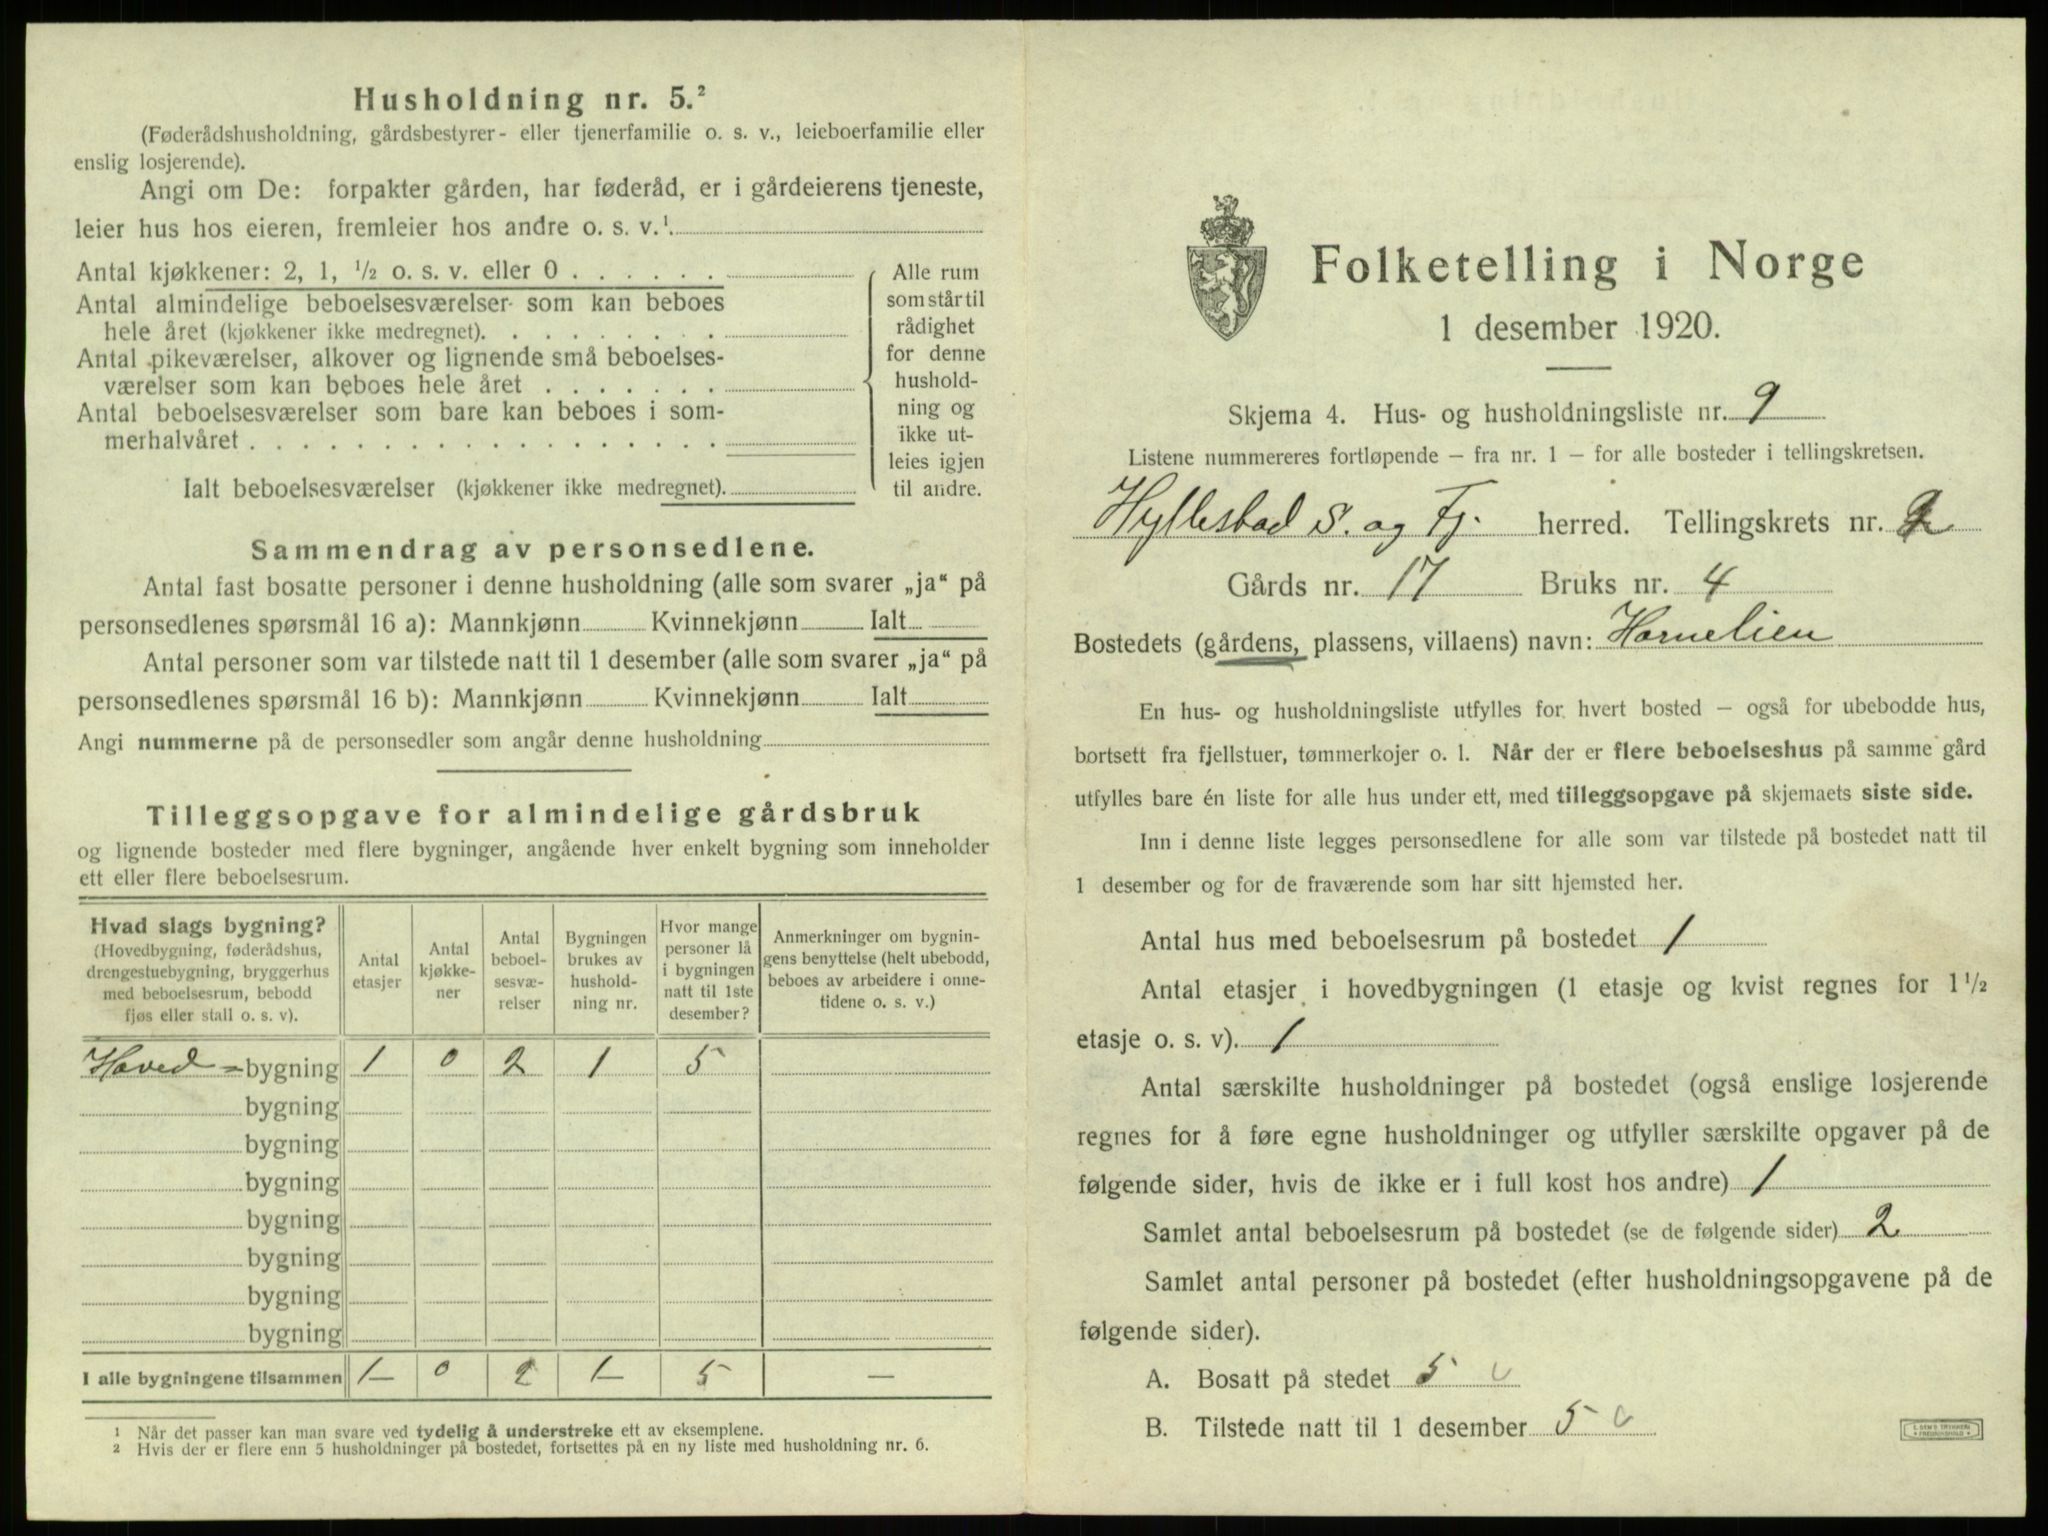 Husholdning nr. 5.²
(Føderådshusholdning, gårdsbestyrer- eller tjenerfamilie o. s. v., leieboerfamilie eller
enslig losjerende).
Angi om De: forpakter gården, har føderåd, er i gårdeierens tjeneste,
leier hus hos eieren, fremleier hos andre o. s. v.¹
Antal kjøkkener: 2, 1, ½ o. s. v. eller 0 . . . . . .
Antal almindelige beboelsesværelser som kan beboes
hele året (kjøkkener ikke medregnet). . . . . . . .
Antal pikeværelser, alkover og lignende små beboelses-
værelser som kan beboes hele året . . . . . . .
Antal beboelsesværelser som bare kan beboes i som-
merhalvåret . . . . . . . . . . . . . . . . . .
Ialt beboelsesværelser (kjøkkener ikke medregnet).
Alle rum
som står til
rådighet
for denne
hushold-
ning og
ikke ut-
leies igjen
til andre.
Sammendrag av personsedlene.
Antal fast bosatte personer i denne husholdning (alle som svarer „ja“ på
personsedlenes spørsmål 16 a): Mannkjønn Kvinnekjønn Ialt
Antal personer som var tilstede natt til 1 desember (alle som svarer „ja“ på
personsedlenes spørsmål 16 b): Mannkjønn Kvinnekjønn Ialt
Angi nummerne på de personsedler som angår denne husholdning
Tilleggsopgave for almindelige gårdsbruk
og lignende bosteder med flere bygninger, angående hver enkelt bygning som inneholder
ett eller flere beboelsesrum.
Hvad slags bygning?
(Hovedbygning, føderådshus,
drengestuebygning, bryggerhus
med beboelsesrum, bebodd
fjøs eller stall o. s. v).
Antal
etasjer
Antal
kjøkke-
ner
Antal
beboel-
sesvæ-
relser
Bygningen
brukes av
hushold-
ning nr.
Hvor mange
personer lå
i bygningen
natt til 1ste
desember?
Anmerkninger om bygnin-
gens benyttelse (helt ubebodd,
beboes av arbeidere i onne-
tidene o. s. v.)
Hoved = bygning 1 0 2 1 5
bygning
bygning
bygning
bygning
bygning
bygning
bygning
I alle bygningene tilsammen 1 0 2 1 5 —
¹ Når det passer kan man svare ved tydelig å understreke ett av eksemplene.
² Hvis der er flere enn 5 husholdninger på bostedet, fortsettes på en ny liste med husholdning nr. 6.
Folketelling i Norge
1 desember 1920.
Skjema 4. Hus- og husholdningsliste nr. 9
Listene nummereres fortløpende – fra nr. 1 – for alle bosteder i tellingskretsen.
Hyllestad S. og Fj. herred. Tellingskrets nr. 2
Gårds nr. 17 Bruks nr. 4
Bostedets (gårdens, plassens, villaens) navn: Hornelien
En hus- og husholdningsliste utfylles for hvert bosted – også for ubebodde hus,
bortsett fra fjellstuer, tømmerkojer o. l. Når der er flere beboelseshus på samme gård
utfylles bare én liste for alle hus under ett, med tilleggsopgave på skjemaets siste side.
Inn i denne liste legges personsedlene for alle som var tilstede på bostedet natt til
1 desember og for de fraværende som har sitt hjemsted her.
Antal hus med beboelsesrum på bostedet 1
Antal etasjer i hovedbygningen (1 etasje og kvist regnes for 1½
etasje o. s. v). 1
Antal særskilte husholdninger på bostedet (også enslige losjerende
regnes for å føre egne husholdninger og utfyller særskilte opgaver på de
følgende sider, hvis de ikke er i full kost hos andre) 1
Samlet antal beboelsesrum på bostedet (se de følgende sider) 2
Samlet antal personer på bostedet (efter husholdningsopgavene på de
følgende sider).
A. Bosatt på stedet 5
B. Tilstede natt til 1 desember 5